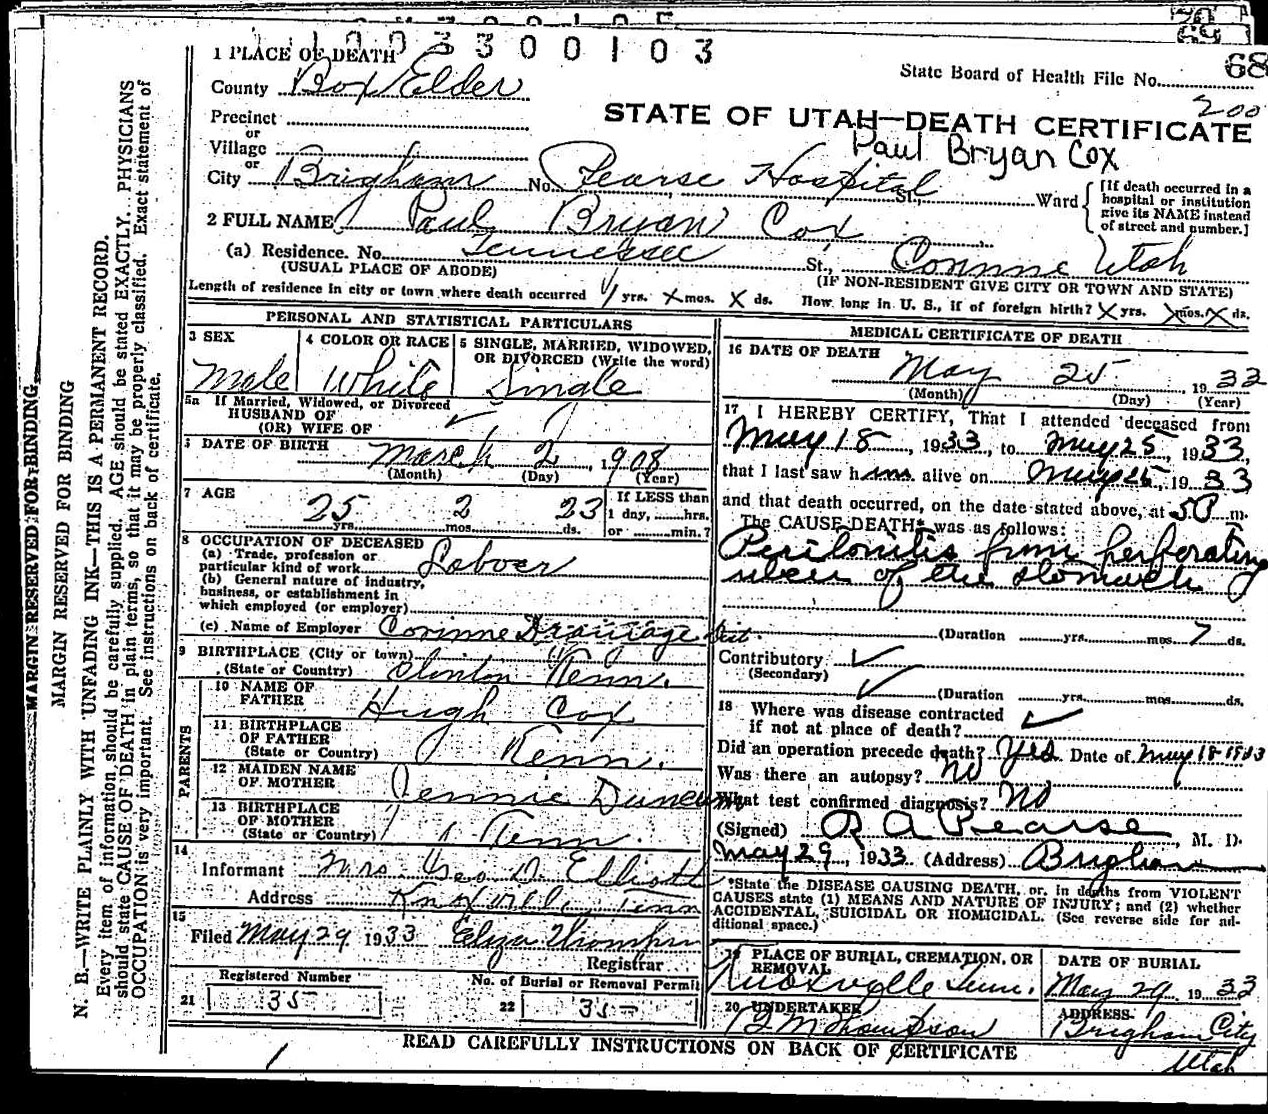 1003300103
1 PLACE OF DEATH
State Board of Health File No. 68
200
County Box Elder
STATE OF UTAH—DEATH CERTIFICATE
Paul Bryan Cox
Precinct
or
Village
or
City Brigham No. Pearse Hospital St., Ward
[If death occurred in a hospital or institution give its NAME instead of street and number.]
2 FULL NAME Paul Bryan Cox
(a) Residence. No. Tennessee St., Corinne Utah
(USUAL PLACE OF ABODE) (IF NON-RESIDENT GIVE CITY OR TOWN AND STATE)
Length of residence in city or town where death occurred 1 yrs. x mos. x ds. How long in U. S., if of foreign birth? x yrs. x mos. x ds.
PERSONAL AND STATISTICAL PARTICULARS
3 SEX 4 COLOR OR RACE 5 SINGLE, MARRIED, WIDOWED, OR DIVORCED (Write the word)
Male White Single
5a If Married, Widowed, or Divorced
HUSBAND OF
(OR) WIFE OF
DATE OF BIRTH March 2, 1908
(Month) (Day) (Year)
7 AGE 25 yrs. 2 mos. 23 ds.
If LESS than
1 day, hrs.
or min.?
8 OCCUPATION OF DECEASED
(a) Trade, profession or
particular kind of work Laboer
(b) General nature of industry,
business, or establishment in
which employed (or employer)
(c) Name of Employer Corinne Drainage Dist.
9 BIRTHPLACE (City or town)
(State or Country) Clinton Tenn.
PARENTS
10 NAME OF
FATHER Hugh Cox
11 BIRTHPLACE
OF FATHER
(State or Country) Tenn.
12 MAIDEN NAME
OF MOTHER Jennie Duncum
13 BIRTHPLACE
OF MOTHER
(State or Country) Tenn.
14
Informant Mrs. Geo D. Elliott
Address Knoxville, Tenn
15
Filed May 29 1933 Eliza
Registrar
Registered Number No. of Burial or Removal Permit
21 35 22 35
MEDICAL CERTIFICATE OF DEATH
16 DATE OF DEATH
May 25, 1933
(Month) (Day) (Year)
17 I HEREBY CERTIFY, That I attended deceased from
May 18, 1933, to May 25, 1933,
that I last saw him alive on May 25, 1933
and that death occurred, on the date stated above, at 5 P m.
The CAUSE DEATH* was as follows:
Peritonitis from perforating
ulcer of the stomach
(Duration yrs. mos. 7 ds.
Contributory
(Secondary)
(Duration yrs. mos. ds.
18 Where was disease contracted
if not at place of death?
Did an operation precede death? Yes Date of May 18 1933
Was there an autopsy? No
What test confirmed diagnosis? No
(Signed) R A Pearse, M. D.
May 29, 1933 (Address) Brigham
*State the DISEASE CAUSING DEATH, or in deaths from VIOLENT
CAUSES state (1) MEANS AND NATURE OF INJURY; and (2) whether
ACCIDENTAL, SUICIDAL OR HOMICIDAL. (See reverse side for additional space.)
PLACE OF BURIAL, CREMATION, OR REMOVAL DATE OF BURIAL
Knoxville Tenn. May 29, 1933
20 UNDERTAKER ADDRESS
Thompson Brigham City
Utah
READ CAREFULLY INSTRUCTIONS ON BACK OF CERTIFICATE
MARGIN RESERVED FOR BINDING
MARGIN RESERVED FOR BINDING
N. B.—WRITE PLAINLY WITH UNFADING INK—THIS IS A PERMANENT RECORD.
Every item of information should be carefully supplied. AGE should be stated EXACTLY. PHYSICIANS
should state CAUSE OF DEATH in plain terms, so that it may be properly classified. Exact statement of
OCCUPATION is very important. See instructions on back of certificate.